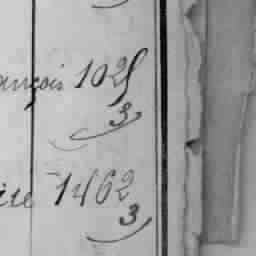 ançois 1025
3
ite 1462
3